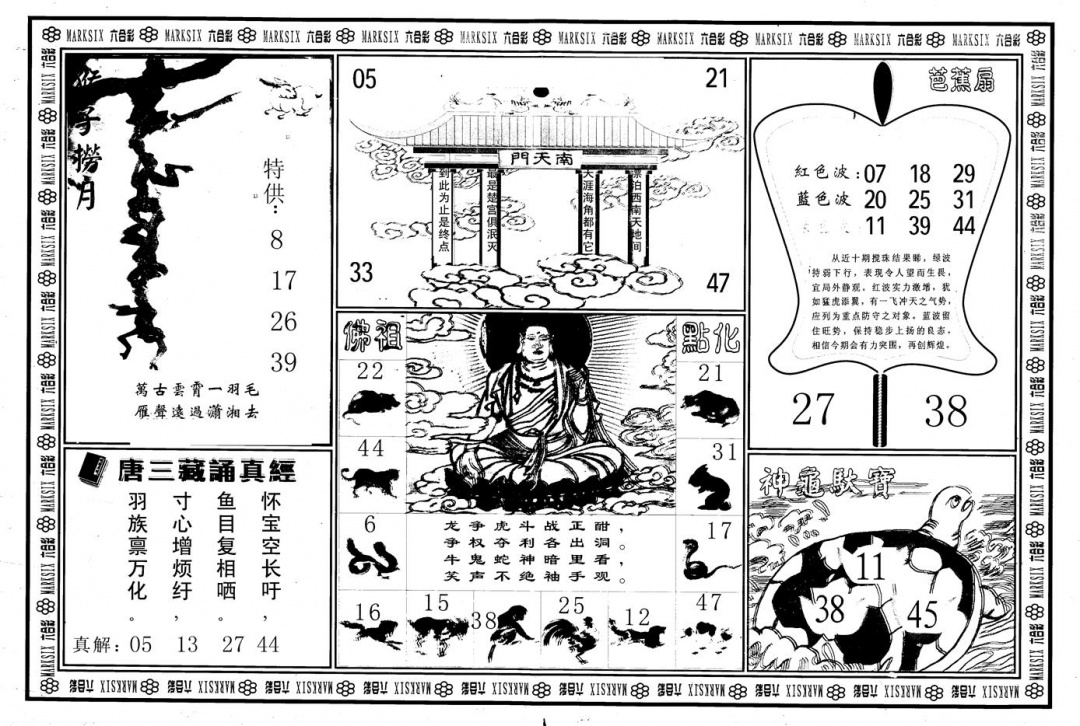 MARKSIX 六合彩 MARKSIX 六合彩 MARKSIX 六合彩 MARKSIX 六合彩 MARKSIX 六合彩 MARKSIX 六合彩 MARKSIX 六合彩 MARKSIX 六合彩 MARKSIX 六合彩 MARKSIX 六合彩
猴子撈月
特供：
8
17
26
39
萬古雲霄一羽毛
雁聲遠過瀟湘去
唐三藏誦真經
怀宝空长吁，
鱼目复相哂。
寸心增烦纡，
羽族禀万化。
真解：05 13 27 44
05 21
南天門
漂泊西南天地间
天涯海角都有它
最是楚宫俱泯灭
到此为止是终点
33 47
佛祖 點化
22 21
44 31
6 17
龙争虎斗战正酣，
争权夺利各出洞。
牛鬼蛇神暗里看，
笑声不绝袖手观。
16 15 38 25 12 47
芭蕉扇
紅色波：07 18 29
藍色波 20 25 31
11 39 44
从近十期搅珠结果睇，绿波
持弱下行，表现令人望而生畏，
宜局外静观。红波实力激增，犹
如猛虎添翼，有一飞冲天之气势，
应列为重点防守之对象。蓝波留
住旺势，保持稳步上扬的良态，
相信今期会有力突围，再创辉煌。
27 38
神龜馱寶
11
38 45